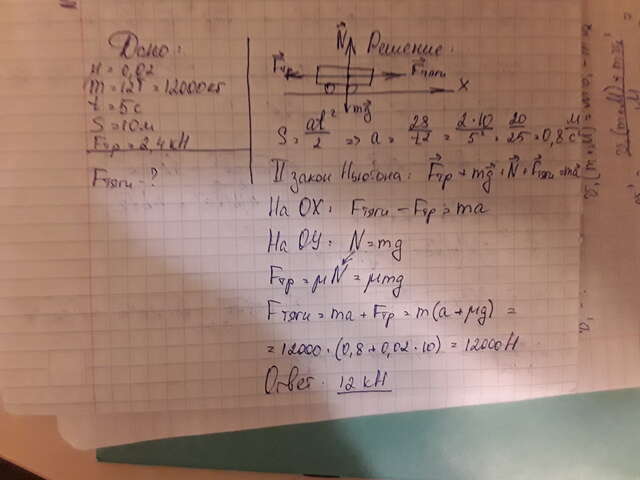 Дано:
μ = 0,02
m = 12т = 12000кг
t = 5с
S = 10м
Fтр = 2,4кН
Fтяги - ?
Решение:
N
Fтр
Fтяги
X
mg
S = at²/2 => a = 2S/t² = 2·10/5² = 20/25 = 0,8 м/с²
II закон Ньютона: Fтр + mg + N + Fтяги = ma
На OX: Fтяги - Fтр = ma
На OY: N = mg
Fтр = μN = μmg
Fтяги = ma + Fтр = m(a + μg) =
= 12000 · (0,8 + 0,02 · 10) = 12000Н
Ответ: 12 кН